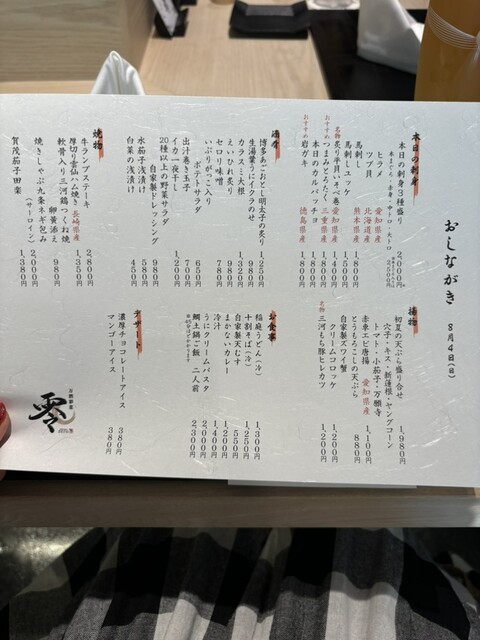 おしながき
8月4日(日)
本日の刺身
本日の刺身3種盛り 2,000円
ヒラメ 愛知県産
ツブ貝 北海道産
馬刺し 熊本県産 1,800円
馬刺しユッケ 1,500円
名物 炙り平貝いそべ巻 愛知県産 1,800円
おすすめ つまみとろたく 三重県産 1,800円
本日のカルパッチョ 1,800円
おすすめ 岩ガキ 徳島県産 1,800円
酒肴
博多あごおとし明太子の炙り 1,250円
生湯葉うにイクラのせ 980円
カラスミ大根 1,320円
えいひれ炙り 980円
セロリ味噌
いぶりがっこ入り
ポテトサラダ 650円
出汁巻き玉子 780円
イカ一夜干し 700円
20種以上の野菜サラダ 1,200円
自家製ドレッシング
水茄子浅漬
白菜の浅漬け 450円
焼物
牛タンステーキ 2,800円
厚切り雲仙ハム焼き 長崎県産 1,350円
軟骨入り三河鶏つくね焼
卵黄添え 980円
焼きしゃぶ九条ネギ包み
(サーロイン)
賀茂茄子田楽 1,380円
揚物
初夏の天ぷら盛り合せ 1,980円
穴子・キス・新蓮根・ヤングコーン
トマト・小茄子・万願寺
赤車エビ唐揚 愛知県産 1,100円
とうもろこしの天ぷら 880円
自家製ズワイ蟹
クリームコロッケ 1,200円
名物 三河もち豚ヒレカツ 1,200円
お食事
稲庭うどん(冷) 1,300円
十割そば(冷) 1,250円
自家製天むす 550円
まかないカレー 1,200円
冷汁 1,400円
うにクリームパスタ 2,000円
鯛土鍋ご飯 二人前 2,300円
デザート
濃厚チョコレートアイス 380円
マンゴーアイス 380円
零